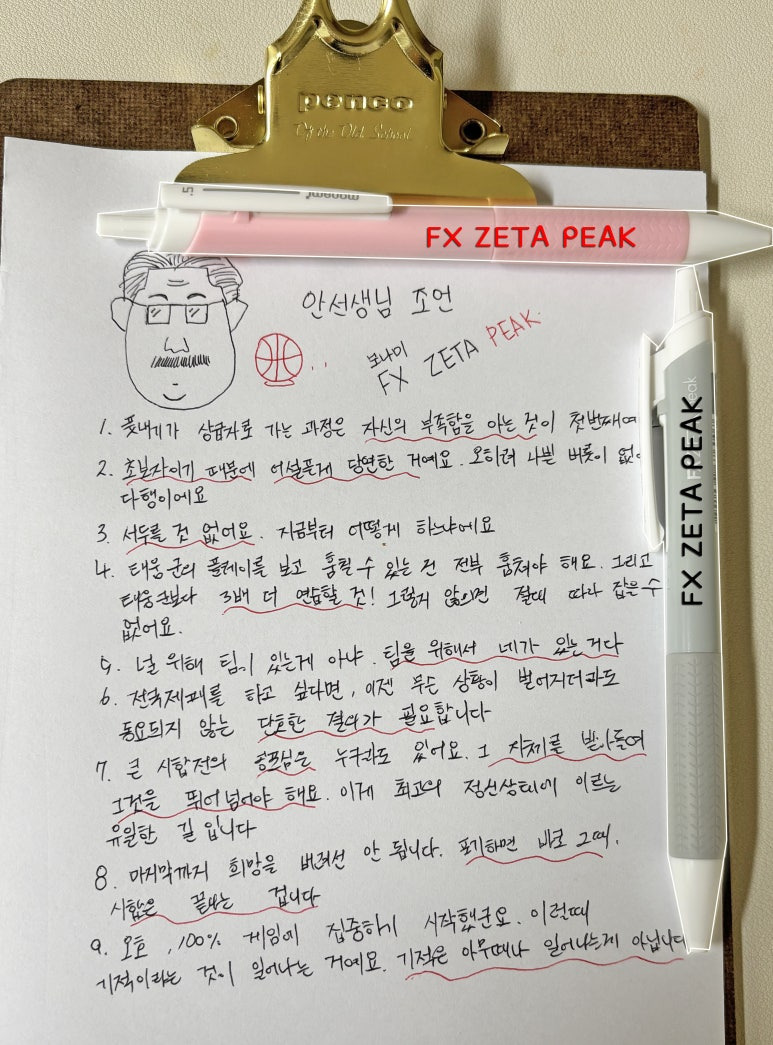 penco
Of the Old School
.5 monami
FX ZETA PEAK
안선생님 조언
모나미
FX ZETA PEAK
FX ZETA PEAK
1. 풋내기가 상급자로 가는 과정은 자신의 부족함을 아는 것이 첫번째
2. 초보자이기 때문에 어설픈게 당연한 거예요. 오히려 나쁜 버릇이 없
다행이에요
3. 서두를 것 없어요. 지금부터 어떻게 하느냐에요
4. 태웅 군의 플레이를 보고 훔칠 수 있는 건 전부 훔쳐야 해요. 그리고
태웅군보다 3배 더 연습할 것! 그렇지 않으면 절대 따라 잡을 수
없어요.
5. 널 위해 팀이 있는게 아냐. 팀을 위해서 네가 있는거다
6. 전국제패를 하고 싶다면, 이젠 무슨 상황이 벌어지더라도
동요되지 않는 단호한 결의가 필요합니다
7. 큰 시합전의 공포심은 누구라도 있어요. 그 자체를 받아들여
그것을 뛰어넘어야 해요. 이게 최고의 정신상태에 이르는
유일한 길 입니다
8. 마지막까지 희망을 버려선 안 됩니다. 포기하면 바로 그때,
시합은 끝나는 겁니다
9. 오호, 100% 게임에 집중하기 시작했군요. 이런때
기적이라는 것이 일어나는 거예요. 기적은 아무때나 일어나는게 아닙니다